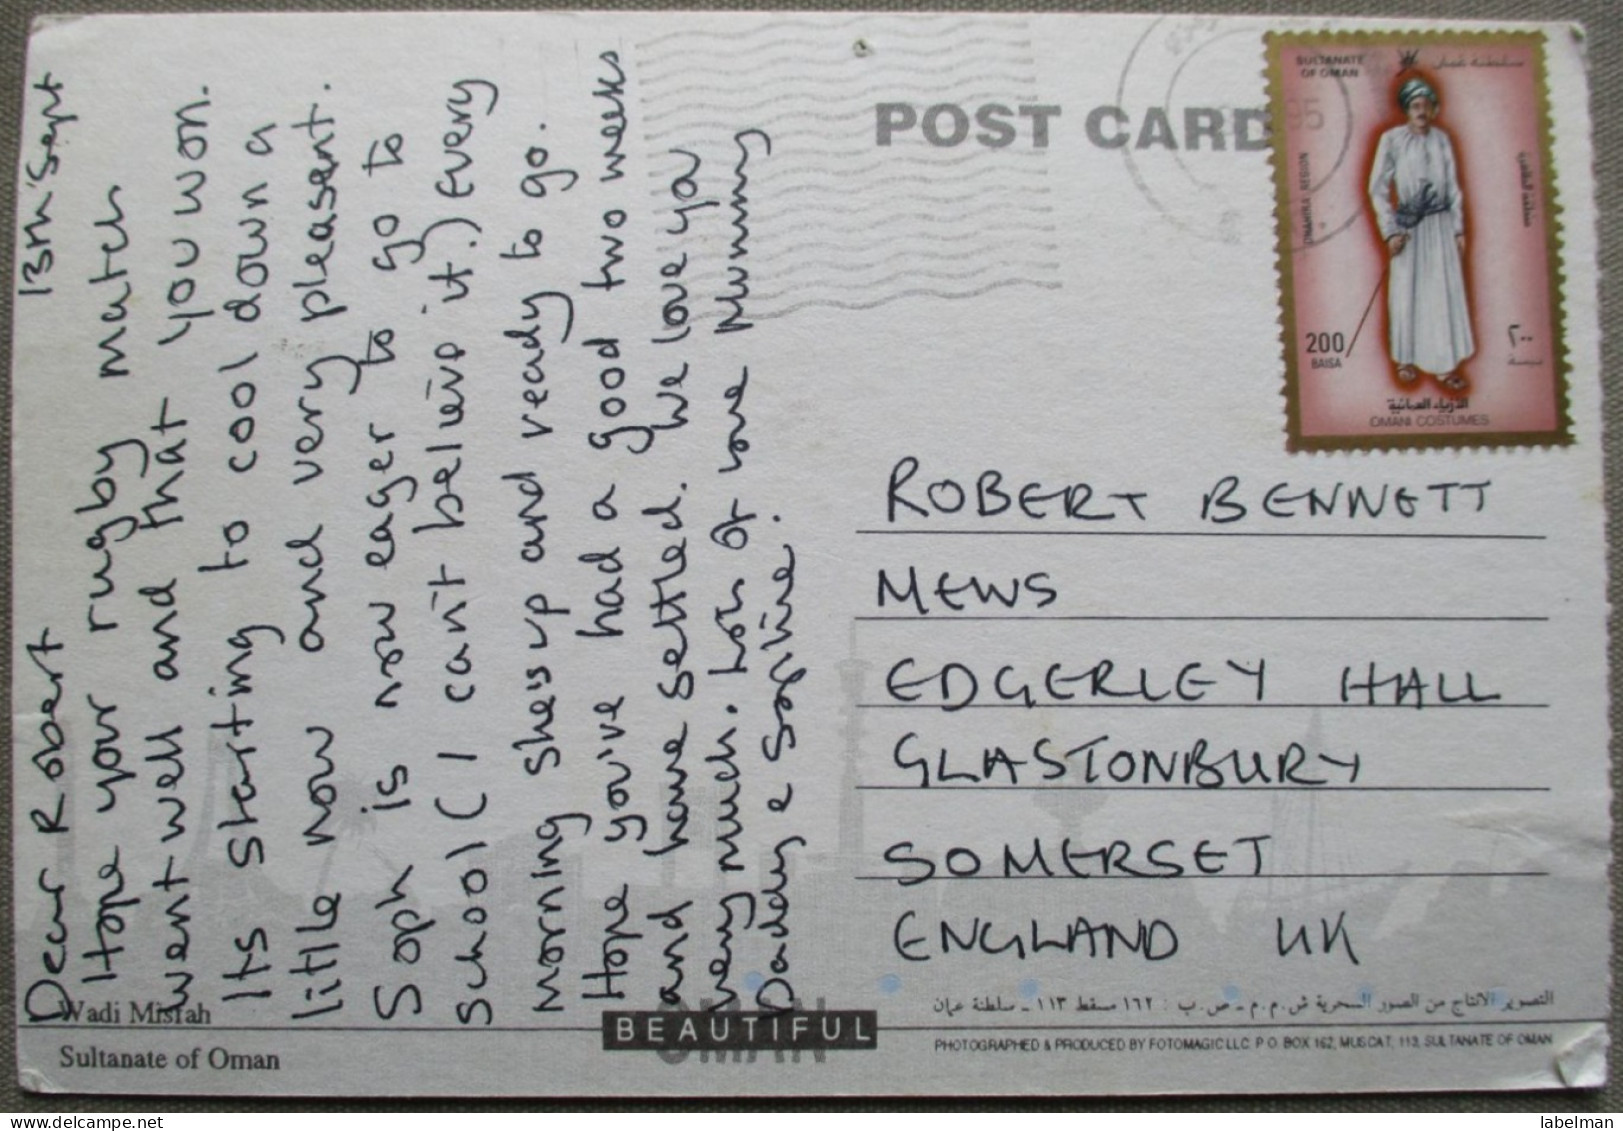 13th Sept
Dear Robert
Hope your rugby match
went well and that you won.
Its starting to cool down a
little now and very pleasent.
Soph is now eager to go to
school (I can't believe it.) Every
morning she's up and ready to go.
Hope you've had a good two weeks
and have settled. We love you
very much. Lots of love Mummy
Daddy e Sophie.
POST CARD
SULTANATE
OF OMAN
سلطنة عمان
DHAHIRA REGION
منطقة الظاهرة
200
BAISA
٢٠٠
بيسة
الأزياء العمانية
OMANI COSTUMES
95
ROBERT BENNETT
MEWS
EDGERLEY HALL
GLASTONBURY
SOMERSET
ENGLAND UK
Wadi Misfah
Sultanate of Oman
BEAUTIFUL
OMAN
التصوير الانتاج من الصور السحرية ش.م.م - ص.ب : ١٦٢ مسقط ١١٣ - سلطنة عمان
PHOTOGRAPHED & PRODUCED BY FOTOMAGIC LLC. P.O. BOX 162, MUSCAT, 113, SULTANATE OF OMAN
labelman
delcampe.net